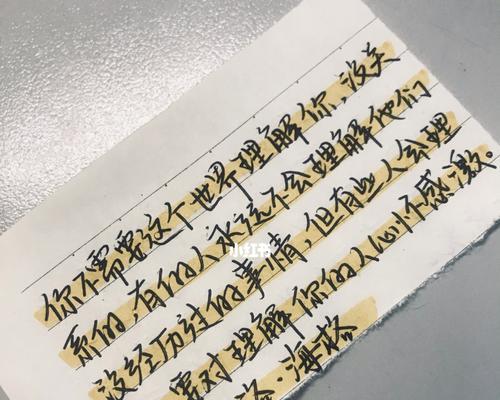 你不需要这个世界理解你，没关
系的，有的人永远不会理解他们
没经历过的事情，但有些人会理
需对理解你的人心怀感激。
洛·海格
小红书